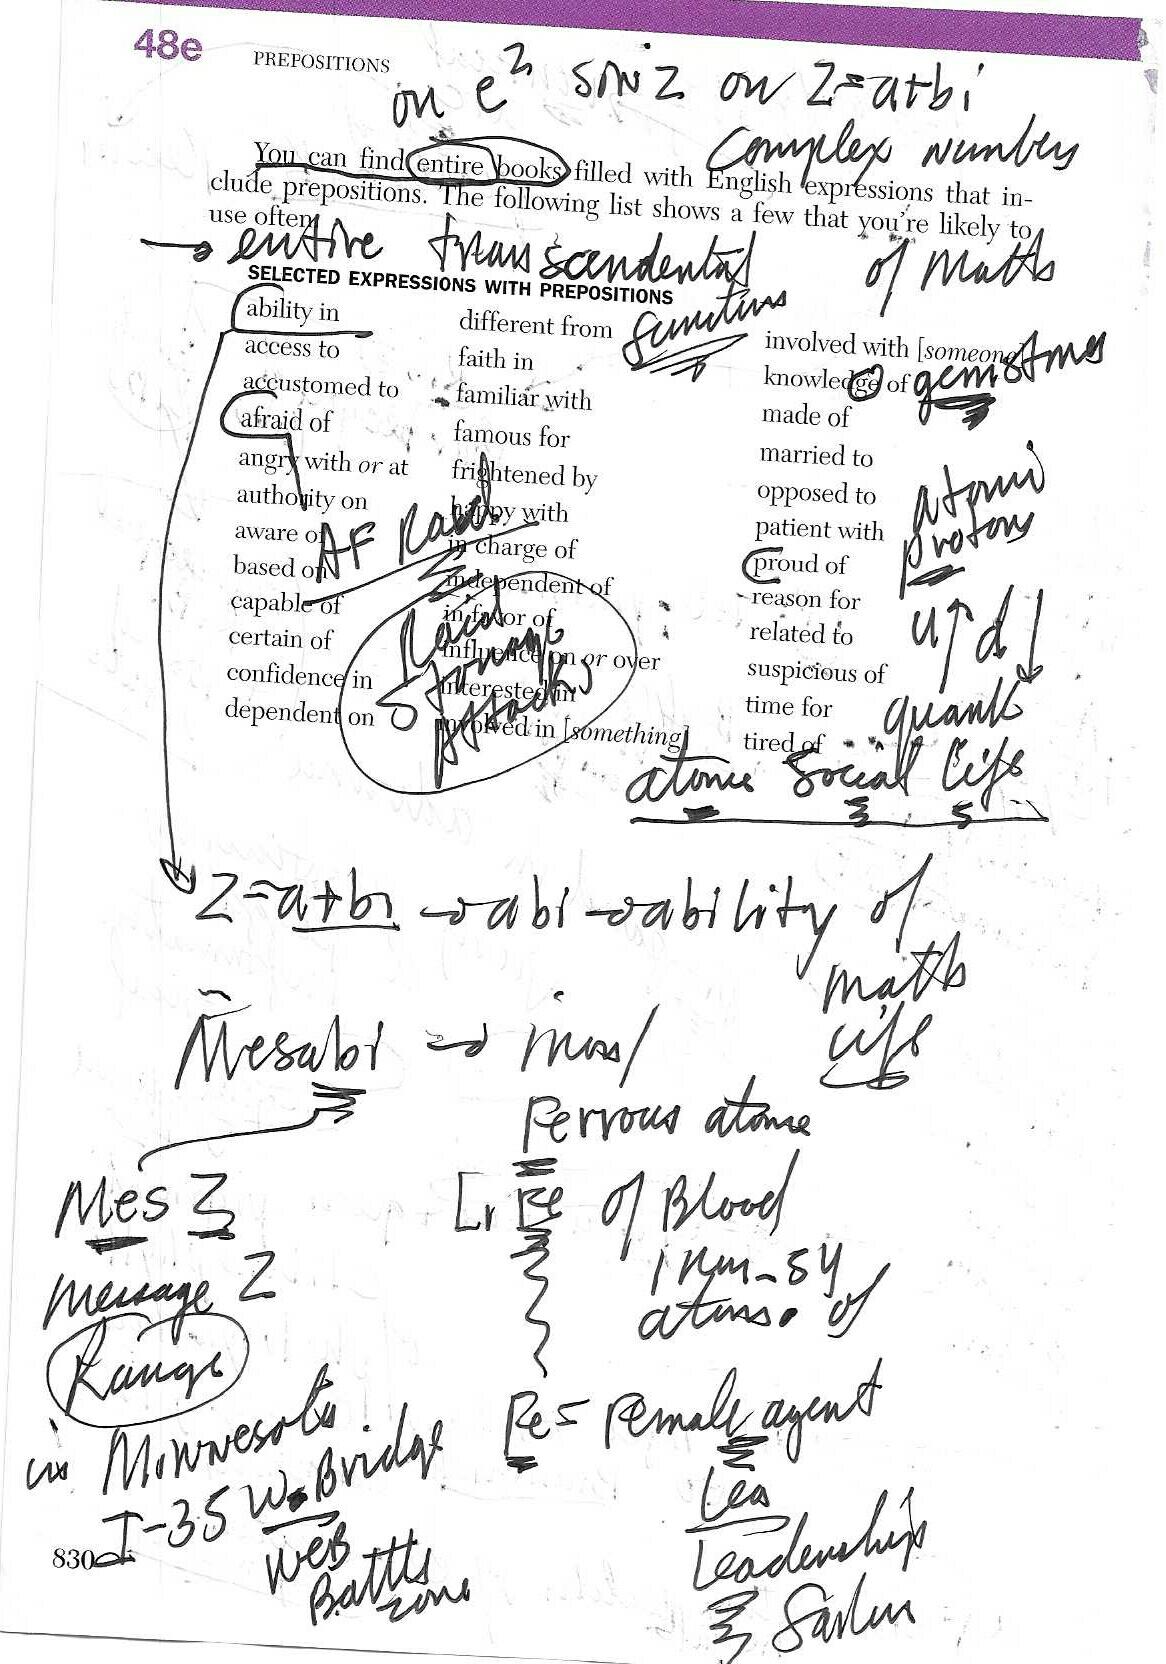 48e
PREPOSITIONS
on e^z sin z on z=a+bi
Complex Numbers
You can find entire books filled with English expressions that in-
clude prepositions. The following list shows a few that you're likely to
use often.
→ entire transcendental of Maths
functions
SELECTED EXPRESSIONS WITH PREPOSITIONS
ability in
access to
accustomed to
afraid of
angry with or at
authority on
aware of
based on
capable of
certain of
confidence in
dependent on
different from
faith in
familiar with
famous for
frightened by
happy with
in charge of
independent of
in favor of
influence on or over
interested in
involved in [something]
involved with [someone]
knowledge of
made of
married to
opposed to
patient with
proud of
reason for
related to
suspicious of
time for
tired of
gemstones
AF Raid
Raid
Storage
Attacks
atomi
protons
u↑ d↓
quark
atomic Social life
z=a+bi → abi → ability of
maths
life
Mesabi →
Ferrous atome
Mes Z
Fe of Blood
message Z
atoms. of
Range
Fe = Female agent
in Minnesota
I-35 W. Bridge
Lea
WEB
Leadership
Battle
zone
830